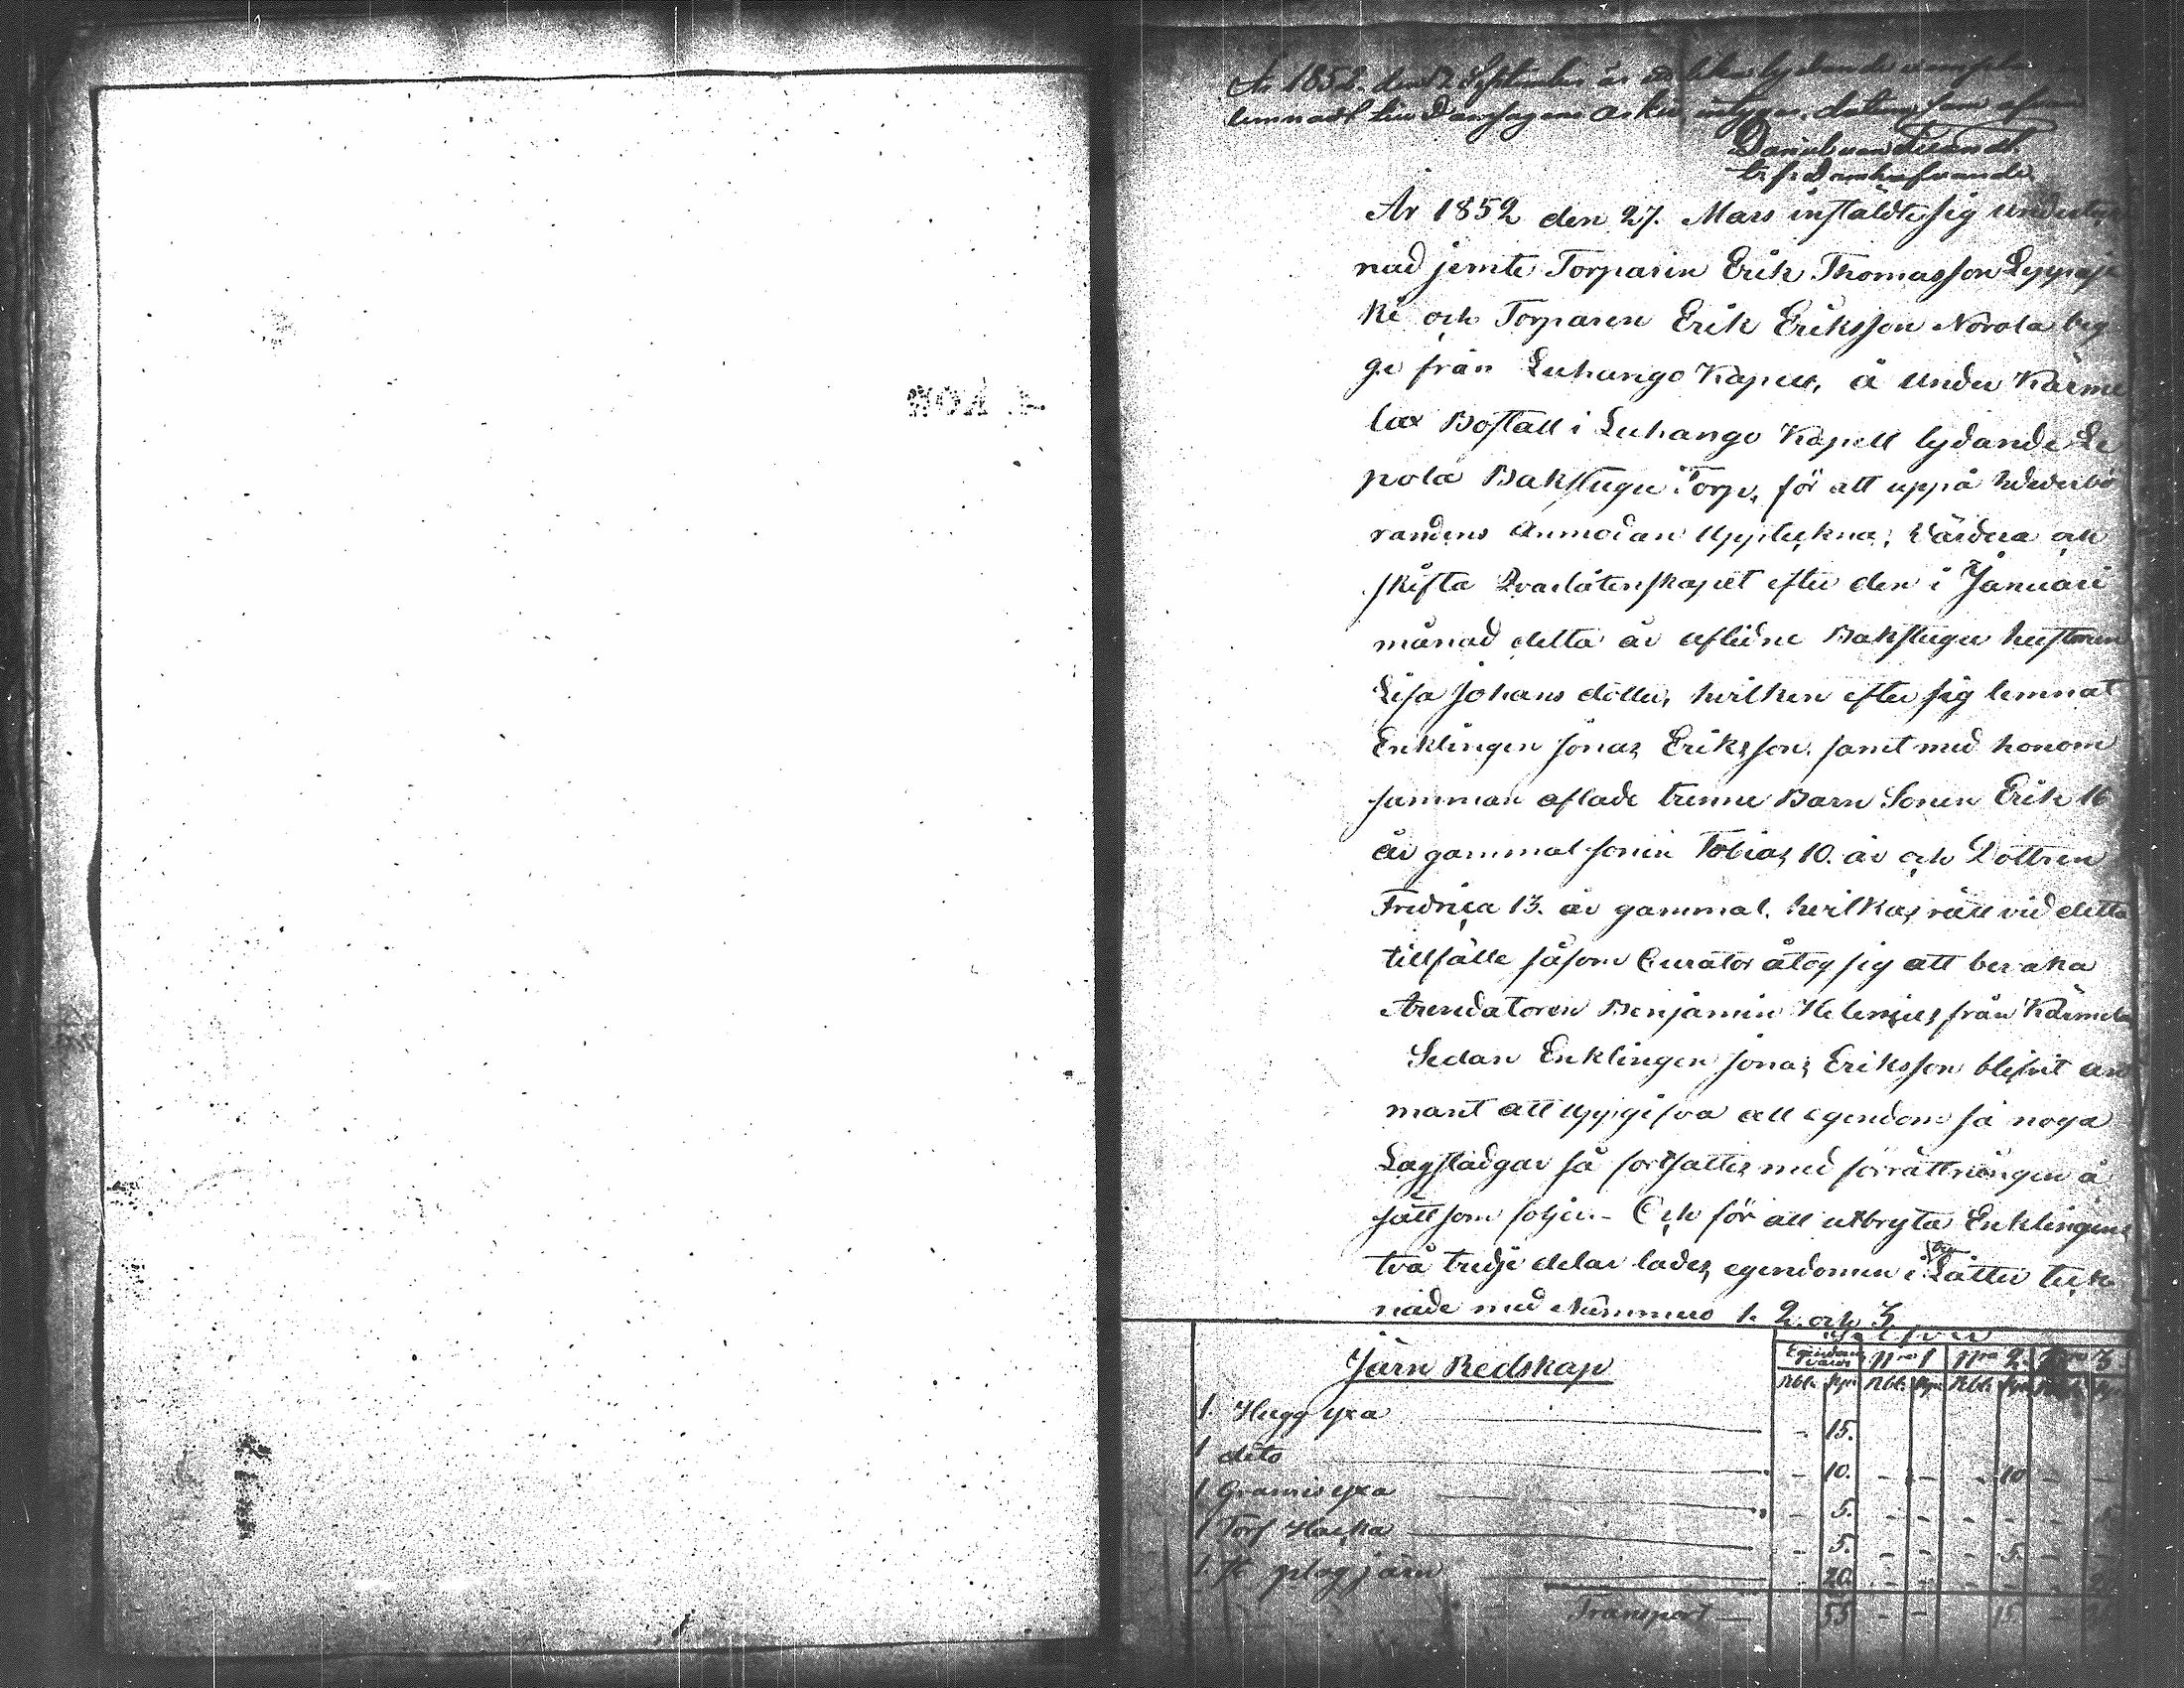 År 1852. den 7 September är ett lika lydande exemplar
lemnadt till Domsagans Arkiv, intygar, datum som ofvan
År 1852 den 27. Mars instälde sig underteck
nad jemte Torparen Erik Thomasson Leppajä
ki och Torparen Erik Eriksson Norola beg
ge från Luhango Kapell, å under Kärme
lax Boställ i Luhango Kapell lydande Le
pola Bakstugu Torp, för att uppå Wederbö
randens Anmodan Uppteckna, Värdera och
skifta Qvarlåtenskapet efter den i Januari
månad detta år aflidne Bakstugu hustrun
Lisa Johans dotter, hvilken efter sig lemnat
Enklingen Jonas Eriksson, samt med honom
samman aflade trenne Barn Sonen Erik 16
år gammal sonen Tobias 10. år och Dottren
Fredrica 13. år gammal, hvilkas rätt vid detta
tillfälle såsom Curator åtog sig att bevaka
Arendatoren Benjamin Helenius från Kärmela
Sedan Enklingen Jonas Eriksson blifvit an
mant att Uppgifva all egendom så noga
Lag stadgar så fortsattes med förrättningen å
sätt som följer. - Och för att utbryta Enklingens
två tredje delar lades egendomen i Låtter teck
nade med Nummero 1. 2. och 3.
Järn Redskap
Egendoms värde Nro 1 Nro 2. Nro 3
Rbl. Kop. Rbl. Kop. Rbl. Kop.
1. Hugg yxa - 15.
1 dito - 10. - - - 10 - -
1 Gramis yxa - 5. - - - - -
1 Torf Hacka - 5. - - - 5. - -
1. plog järn - 20. - - - - -
Transport - 55 - - 15 -